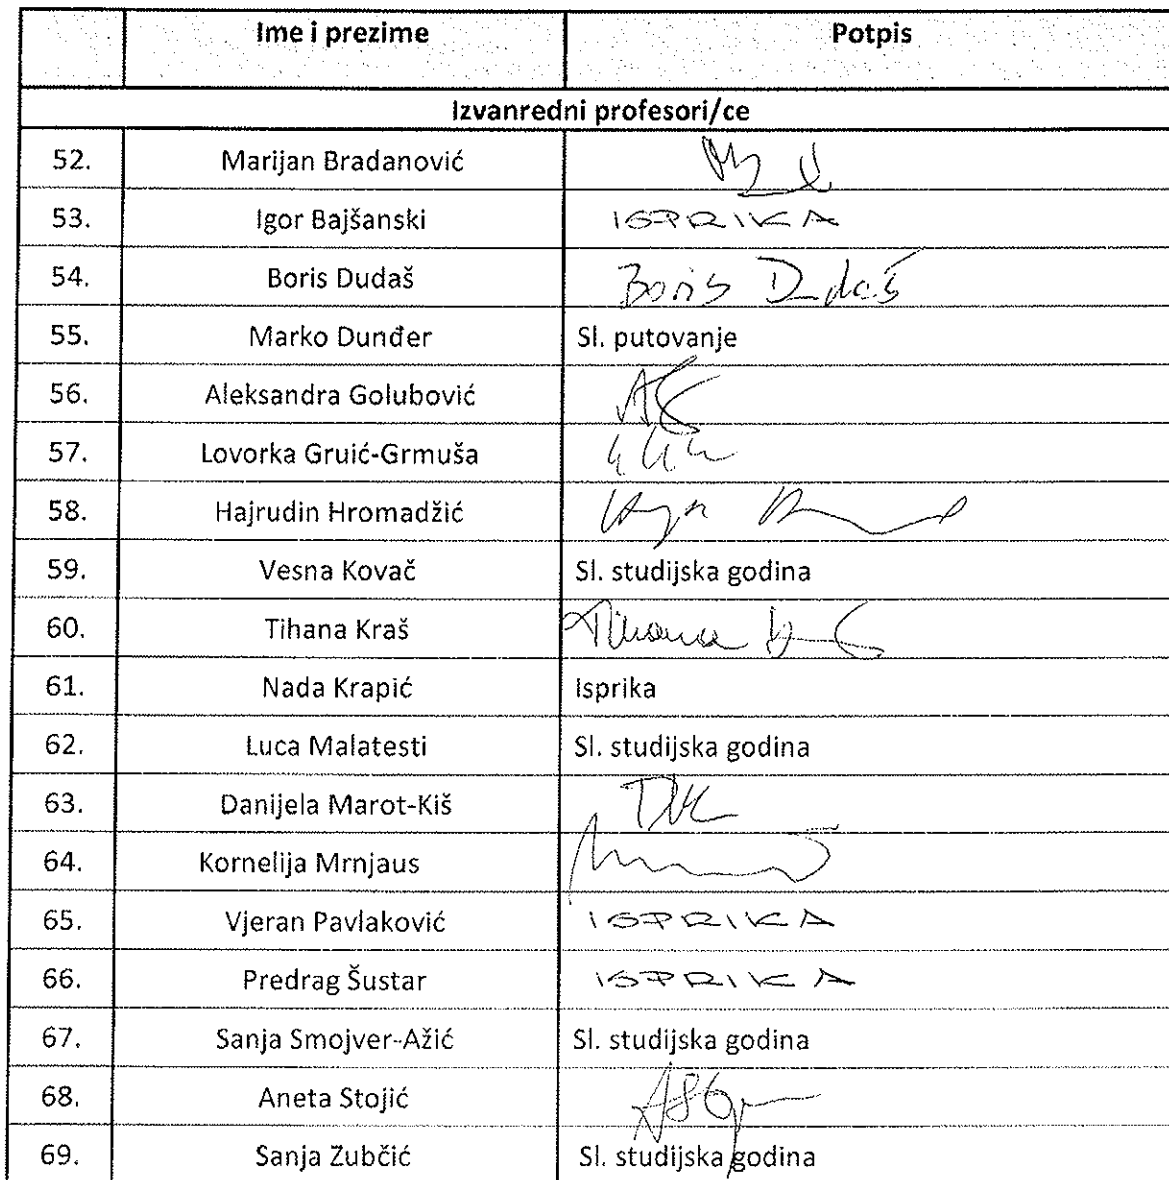 Ime i prezime Potpis
Izvanredni profesori/ce
52. Marijan Bradanović
53. Igor Bajšanski ISPRIKA
54. Boris Dudaš Boris Dudaš
55. Marko Dunđer Sl. putovanje
56. Aleksandra Golubović
57. Lovorka Gruić-Grmuša
58. Hajrudin Hromadžić
59. Vesna Kovač Sl. studijska godina
60. Tihana Kraš Tihana
61. Nada Krapić Isprika
62. Luca Malatesti Sl. studijska godina
63. Danijela Marot-Kiš
64. Kornelija Mrnjaus
65. Vjeran Pavlaković ISPRIKA
66. Predrag Šustar ISPRIKA
67. Sanja Smojver-Ažić Sl. studijska godina
68. Aneta Stojić
69. Sanja Zubčić Sl. studijska godina